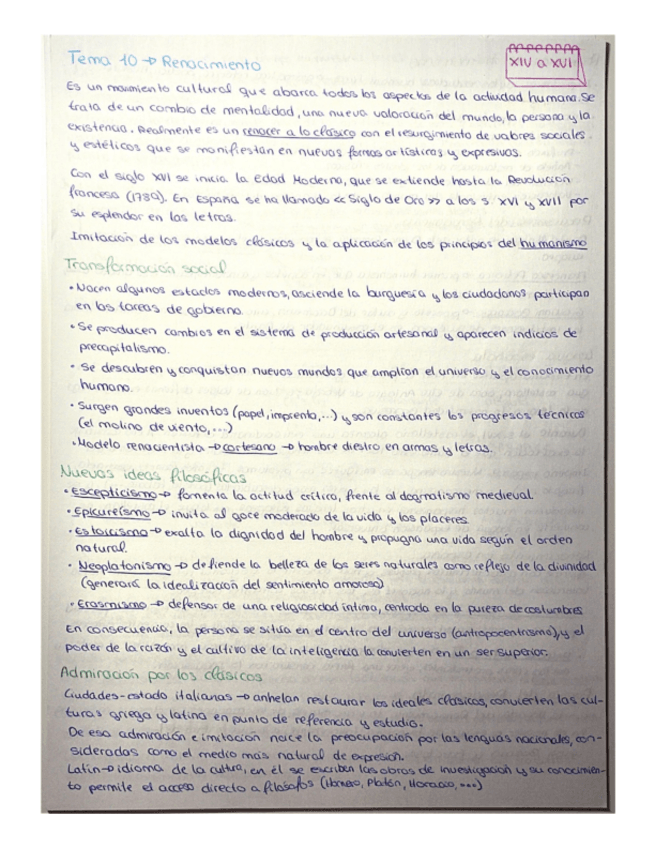 Tema 10 → Renacimiento
XIV a XVI
Es un movimiento cultural que abarca todos los aspectos de la actividad humana. Se
trata de un cambio de mentalidad, una nueva valoración del mundo, la persona y la
existencia. Realmente es un renacer a lo clásico con el resurgimiento de valores sociales
y estéticos que se manifiestan en nuevas formas artísticas y expresivas.
Con el siglo XVI se inicia la Edad Moderna, que se extiende hasta la Revolución
francesa (1789). En España se ha llamado << Siglo de Oro >> a los s. XVI y XVII por
su esplendor en las letras.
Imitación de los modelos clásicos y la aplicación de los principios del humanismo
Transformación social
• Nacen algunos estados modernos, asciende la burguesía y los ciudadanos participan
en las tareas de gobierno.
• Se producen cambios en el sistema de producción artesanal y aparecen indicios de
precapitalismo.
• Se descubren y conquistan nuevos mundos que amplían el universo y el conocimiento
humano.
• Surgen grandes inventos (papel, imprenta,...) y son constantes los progresos técnicos
(el molino de viento,...)
• Modelo renacentista → cortesano → hombre diestro en armas y letras.
Nuevas ideas filosóficas
• Escepticismo → fomenta la actitud crítica, frente al dogmatismo medieval
• Epicureísmo → invita al goce moderado de la vida y los placeres
• Estoicismo → exalta la dignidad del hombre y propugna una vida según el orden
natural.
• Neoplatonismo → defiende la belleza de los seres naturales como reflejo de la divinidad
(generará la idealización del sentimiento amoroso)
• Erasmismo → defensor de una religiosidad íntima, centrada en la pureza de costumbres
En consecuencia, la persona se sitúa en el centro del universo (antropocentrismo), y el
poder de la razón y el cultivo de la inteligencia la convierten en un ser superior.
Admiración por los clásicos
Ciudades-estado italianas → anhelan restaurar los ideales clásicos, convierten las cul-
turas griega y latina en punto de referencia y estudio.
De esa admiración e imitación nace la preocupación por las lenguas nacionales, con-
sideradas como el medio más natural de expresión.
Latín → idioma de la cultura, en él se escriben las obras de investigación y su conocimien-
to permite el acceso directo a filósofos (Homero, Platón, Horacio, ...)